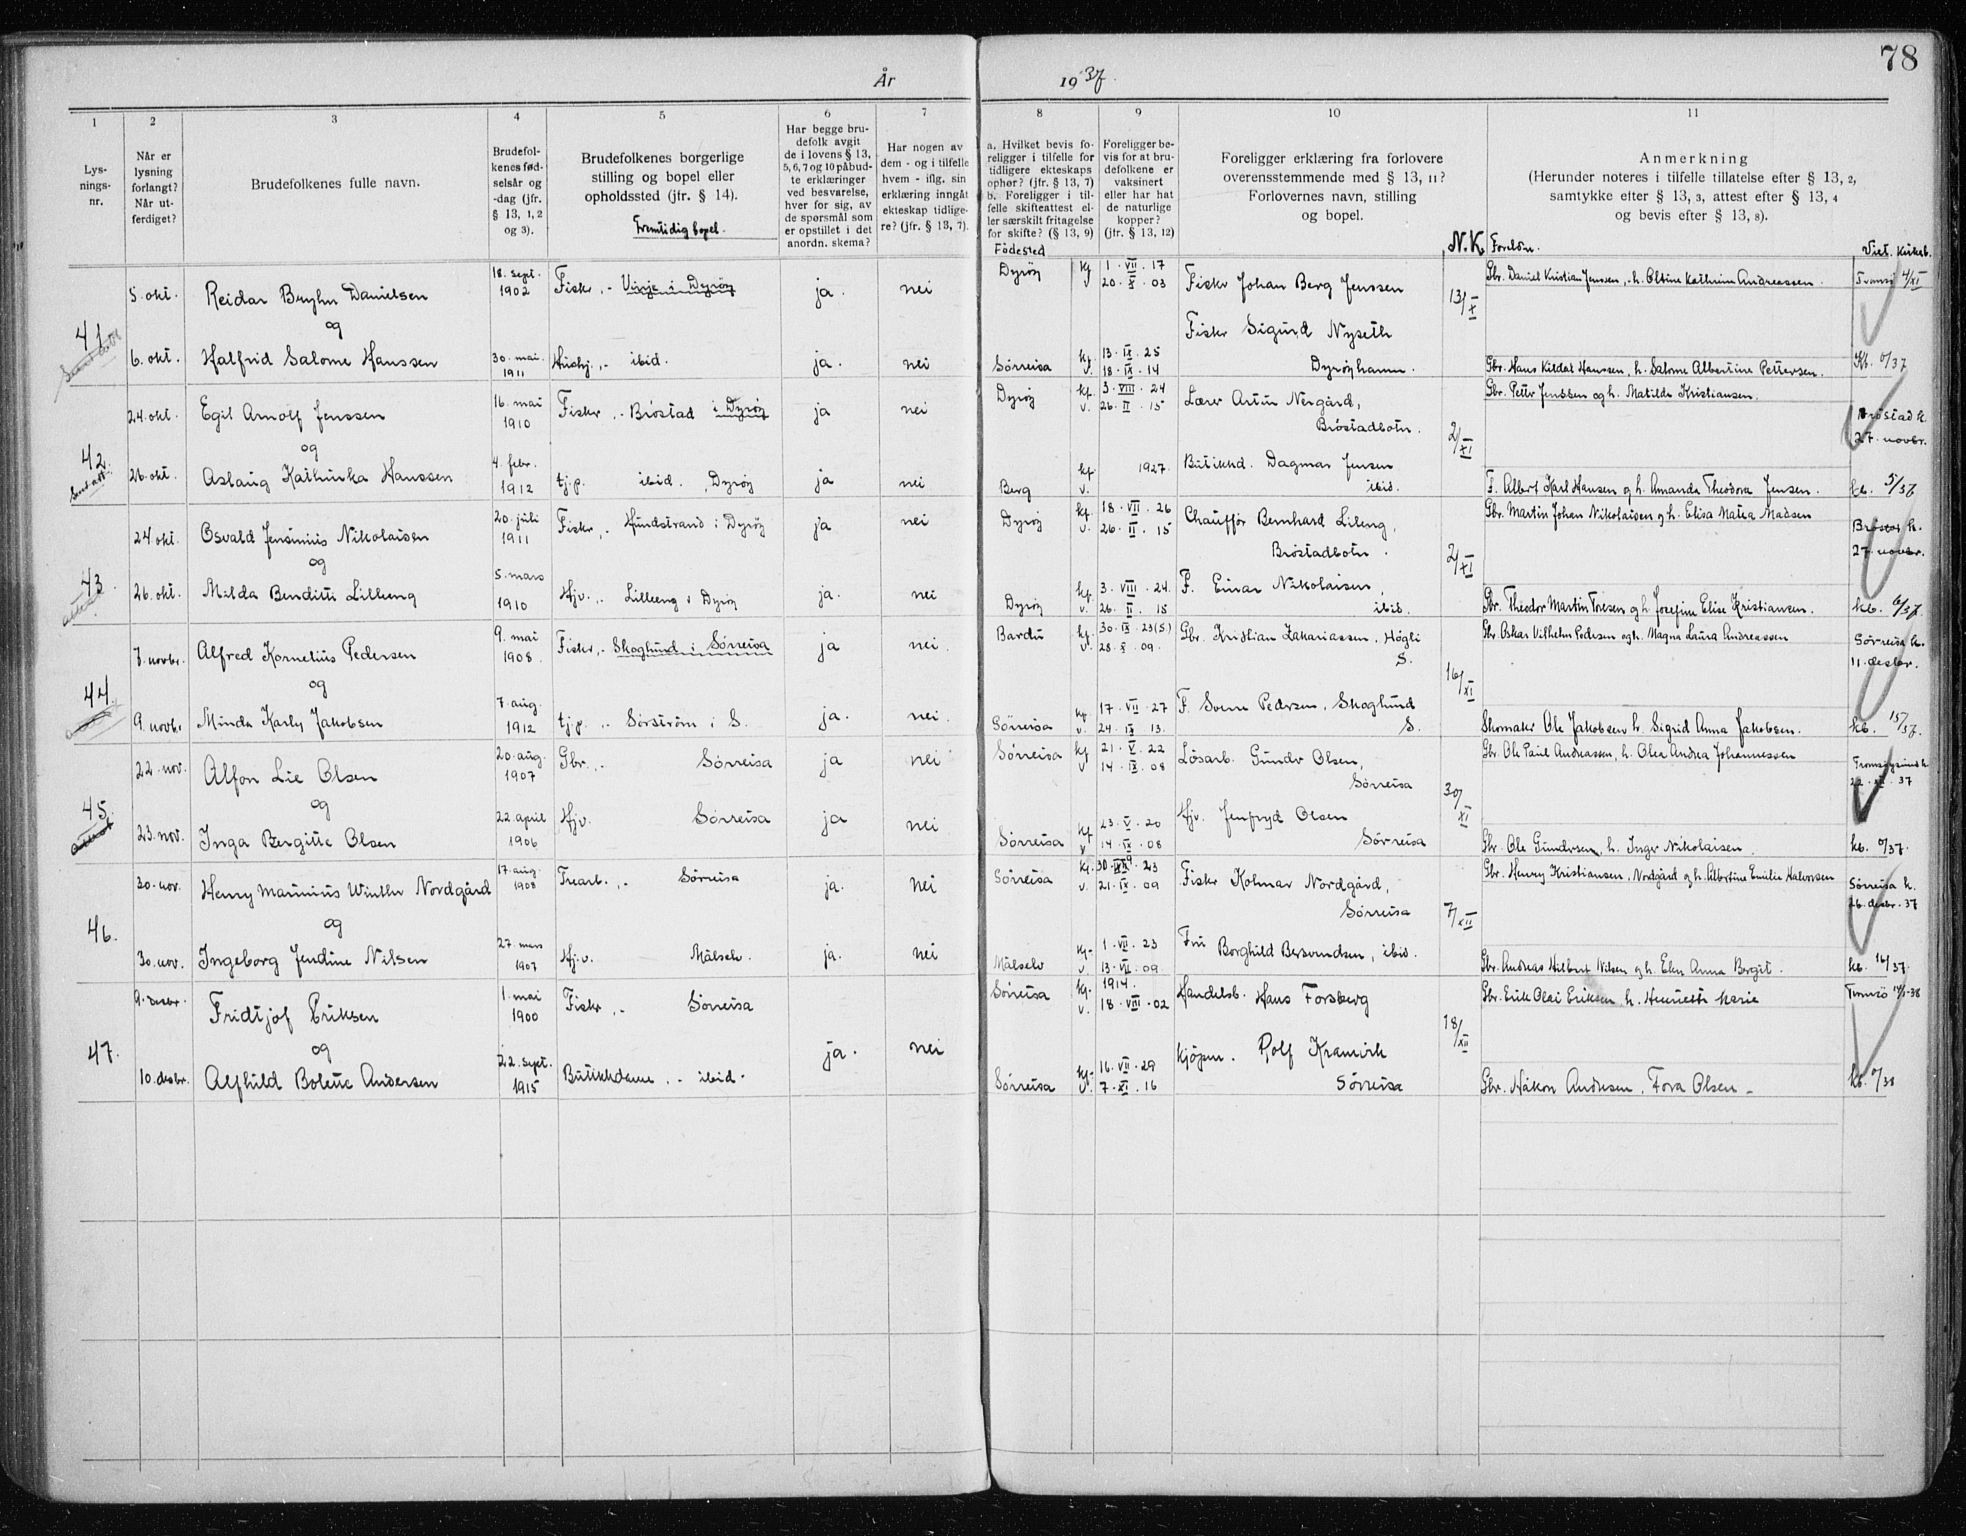 78
År 1937.
1 2 3 4 5 6 7 8 9 10 11
Lys-
nings-
nr.
Når er
lysning
forlangt?
Når ut-
ferdiget?
Brudefolkenes fulle navn.
Brudefol-
kenes fød-
selsår og
-dag (jfr.
§ 13, 1, 2
og 3).
Brudefolkenes borgerlige
stilling og bopel eller
opholdssted (jfr. § 14).
Fremtidig bopel.
Har begge bru-
defolk avgit
de i lovens § 13,
5, 6, 7 og 10 påbud-
te erklæringer
ved besvarelse,
hver for sig, av
de spørsmål som
er opstillet i det
anordn. skema?
Har nogen av
dem - og i tilfelle
hvem - iflg. sin
erklæring inngått
ekteskap tidlige-
re? (jfr. § 13, 7).
a. Hvilket bevis fo-
religger i tilfelle for
tidligere ekteskaps
ophør? (jfr. § 13, 7)
b. Foreligger i til-
felle skifteattest el-
ler særskilt fritagelse
for skifte? (§ 13, 9)
Fødested
Foreligger be-
vis for at bru-
defolkene er
vaksinert
eller har hat
de naturlige
kopper?
(jfr. § 13, 12)
Foreligger erklæring fra forlovere
overensstemmende med § 13, 11?
Forlovernes navn, stilling
og bopel.
N.K.
Anmerkning
(Herunder noteres i tilfelle tillatelse efter § 13, 2,
samtykke efter § 13, 3, attest efter § 13, 4
og bevis efter § 13, 8).
Foreldre. Viet. Kirkeb.
41.
5. okt. Reidar Bryhn Danielsen 18. sept. 1902 Fisker ,- Vinje i Dyrøy ja. nei Dyrøy kf 1. VII. 17 20. X. 03 Fisker Johan Berg Jenssen 13/X Gbr. Daniel Kristian Jenssen, h. Oltine Kathrine Andreassen. Tromsø 4/XI
og
Fisker Sigurd Nyseth
6. okt. Halfrid Salome Hanssen 30. mai 1911 Hushj. ,- ibid. ja. nei Sørreisa kf. 13. IX. 25 v. 18. IX. 14 Dyrøyhamn. Gbr. Hans Kildal Hanssen, h. Salome Albertine Pettersen. Kb. 0/37
42.
24. okt. Egil Arnolf Jenssen 16. mai 1910 Fisker ,- Brøstad i Dyrøy ja nei Dyrøy kf. 3. VIII. 24 v. 26. II. 15 Lærer Artur Nergård, Brøstadbotn. 2/XI Gbr. Petter Jenssen og h. Matilde Kristiansen. Brøstad k. 27. novbr.
og
26. okt. Aslaug Kathinka Hanssen 4. febr. 1912 tj.p. ibid., Dyrøy ja nei Berg kf. v. 1927. Butikkd. Dagmar Jensen ibid. F. Albert Karl Hansen og h. Amanda Theodora Jensen. kb. 5/37
43.
24. okt. Osvald Jensinius Nikolaisen 20. juli 1911 Fisker ,- Hundstrand i Dyrøy ja nei Dyrøy kf. 18. VII. 26 v. 26. II. 15 Chauffør Bernhard Lileng, Brøstadbotn. 2/XI Gbr. Martin Johan Nikolaisen og h. Elisa Matea Madsen Brøstad k. 27. novbr.
og
26. okt. Milda Benditte Lilleeng 5. mars 1910 Hjv. ,- Lilleeng i Dyrøy ja. nei Dyrøy kf. 3. VIII. 24. v. 26. II. 15 F. Einar Nikolaisen, ibid. Gbr. Theodor Martin Tresen og h. Josefine Elise Kristiansen. kb. 6/37.
44.
7. novbr. Alfred Kornelius Pedersen 9. mai 1908. Fisker ,- Skoglund i Sørreisa ja nei. Bardu kf. 30. IX. 23 (S.) v. 28. X. 09. Gbr. Kristian Zakariassen, Høgli S. 16/XI Gbr. Oskar Vilhelm Pedersen og h. Magna Laura Andreassen Sørreisa k. 11. desbr.
og
9. novb. Minda Karly Jakobsen 7. aug. 1912 tj.p. ,- Sørstrøm i S. ja. nei. Sørreisa kf 17. VII. 27 v. 24. IX. 13. F. Sverre Pedersen, Skoglund S. Skomaker Ole Jakobsen h. Sigrid Anna Jakobsen. kb. 15/37.
45.
22. nov. Alfon Lie Olsen 20. aug. 1907 Gbr. ,- Sørreisa ja nei Sørreisa kf 21. V. 22 v 14. IX. 08 Løsarb. Gunder Olsen, Sørreisa 30/XI Gbr. Ole Paul Andreassen, h. Olea Andrea Johannessen Tromsøysund k. 22. XII. 37
og
23. nov. Inga Bergitte Olsen 22. april 1906 Hjv. Sørreisa ja nei Sørreisa kf 23. V. 20 v 14. IX. 08 Hjv. Jenfryd Olsen Sørreisa Gbr. Ole Gundersen, h. Inger Nikolaisen. kb. 0/37.
46.
30. nov. Henry Marinius Winther Nordgård 17. aug. 1908 Trearb. ,- Sørreisa ja. nei Sørreisa kf. 30. 9. 23 v. 21. IX. 09 Fisker Kolmar Nordgård, Sørreisa 7/XII Gbr. Henry Kristiansen, Nordgård og h. Albertine Emilie Halvorsen Sørreisa k. 26. desbr. 37
og
30. nov. Ingeborg Jendine Nilsen 27. mars 1907 Hj.v. Målselv. ja. nei Målselv kf. 1. VII. 23 v. 13. VII. 09 Fru Borghild Bersvendsen, ibid. Gbr. Andreas Hilbert Nilsen og h. Elen Anna Bergit. kb. 16/37.
47.
9. desbr. Fridtjof Eriksen 1. mai 1900 Fisker ,- Sørreisa Sørreisa kf. 1914. v. 18. VIII. 02 Handelsb. Hans Forsberg 18/XII Gbr. Erik Olai Eriksen, h. Henriette Marie Tromsø
og ja. nei
10. desbr. Alfhild Bolette Andersen 22. sept. 1915 Butikkdame ,- ibid. Sørreisa kf. 16. VII. 29 v. 7. XI. 16 kjøpm. Rolf Kramvik Sørreisa Gbr. Håkon Andersen, Tora Olsen - kb. 0/38